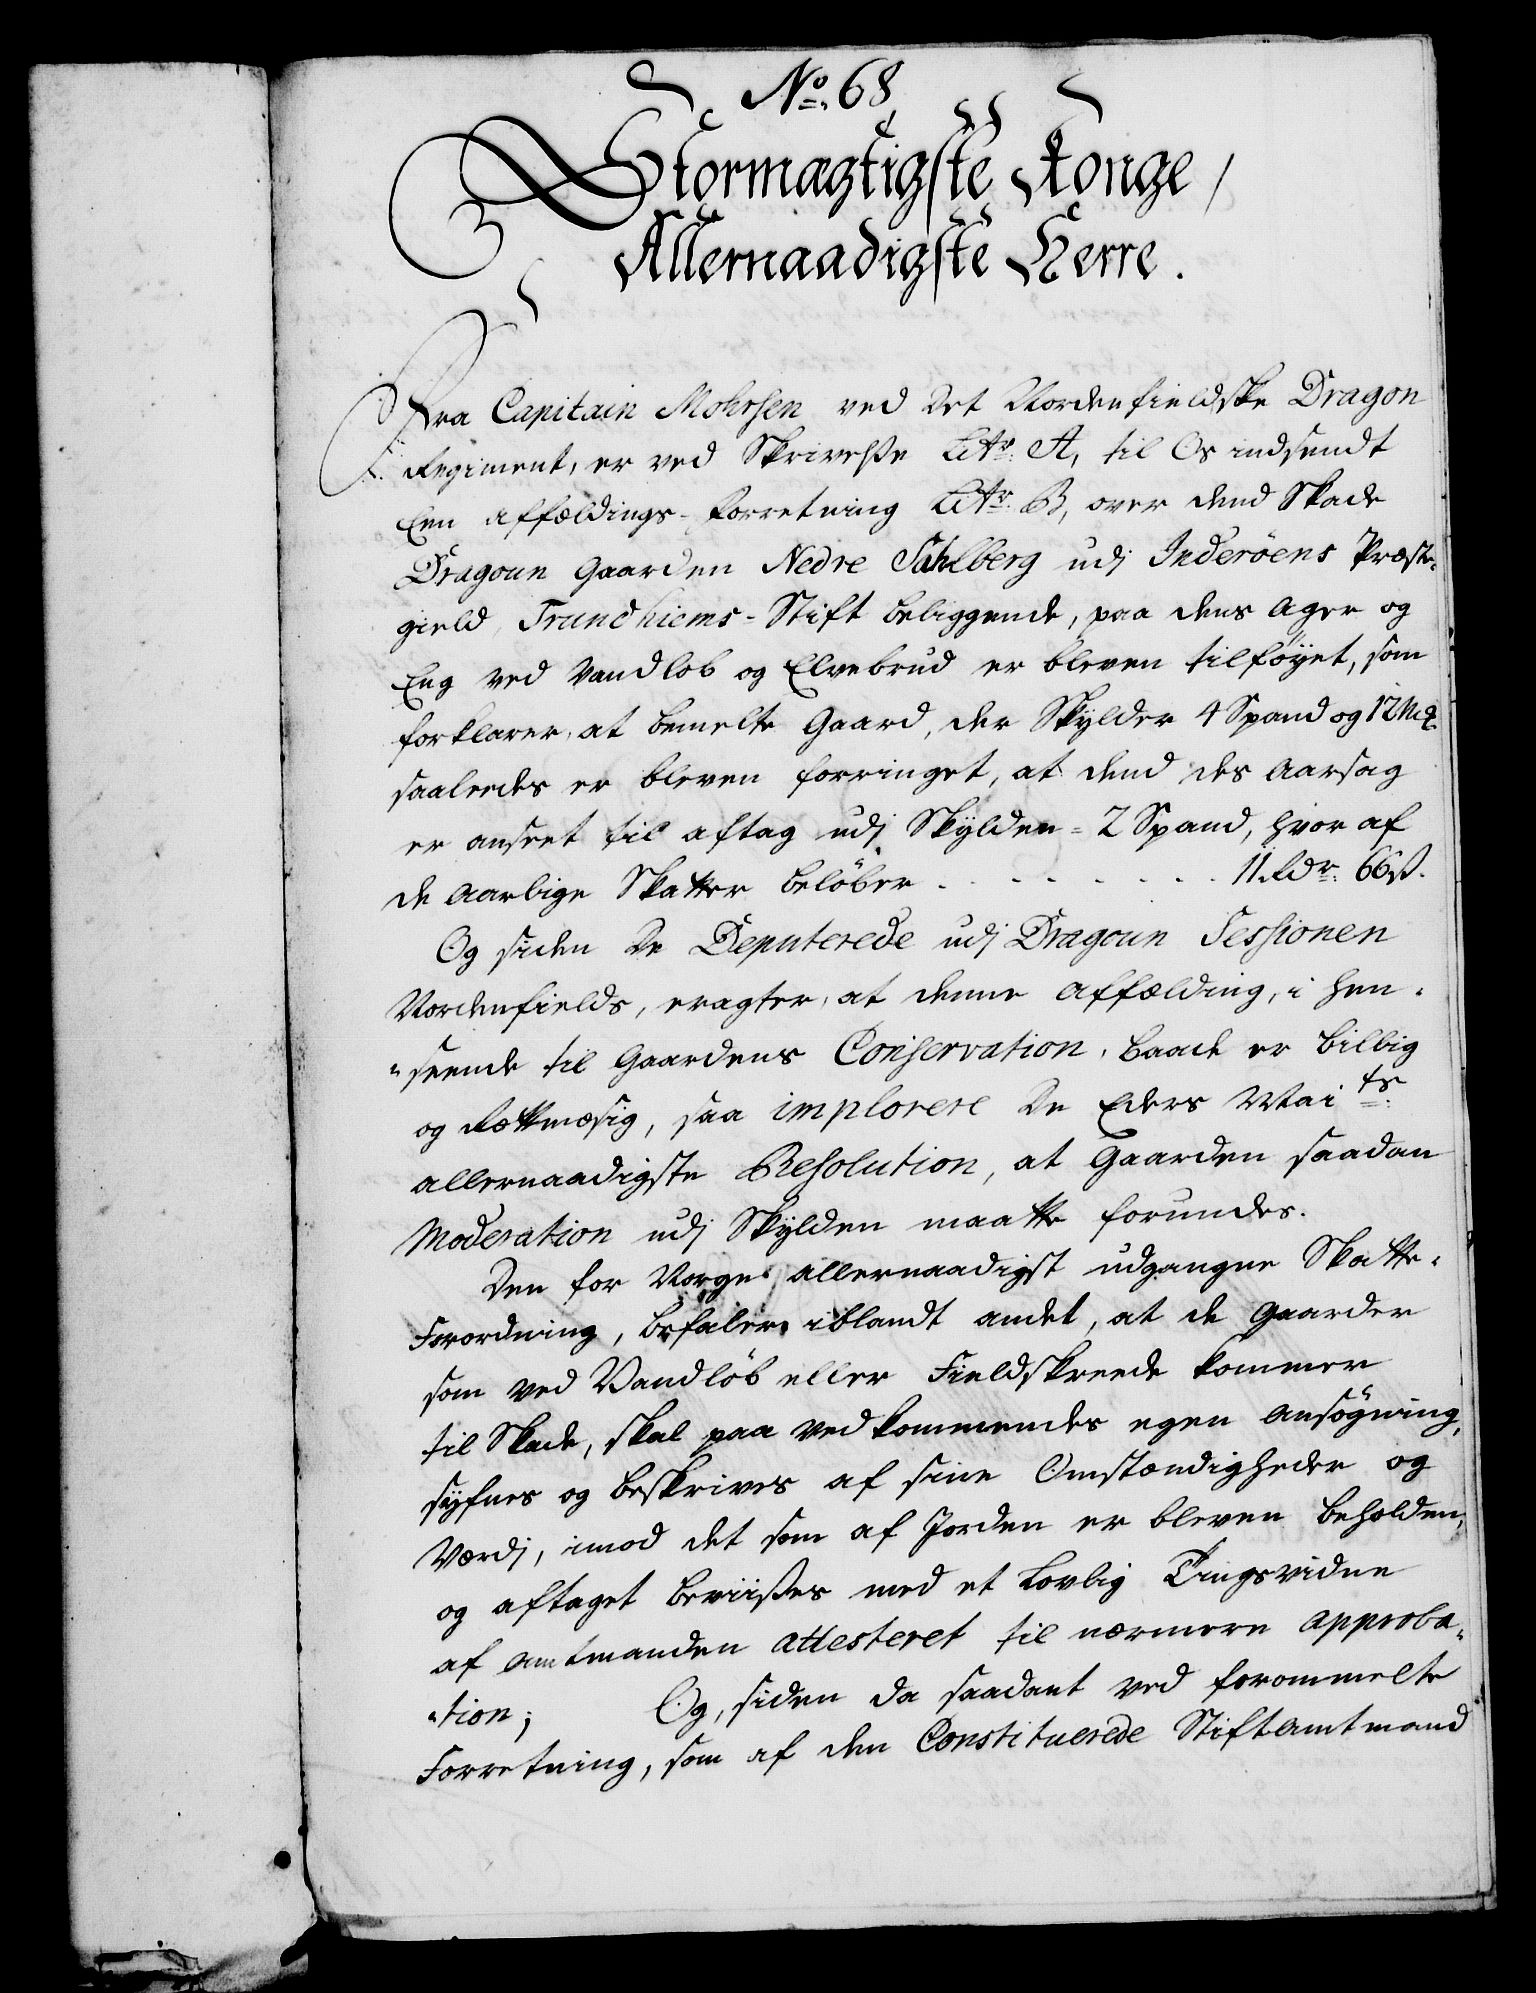 No. 68
Stormægtigste Konge,
Allernaadigste Herre.
Fra Capitain Mohrsen ved det Nordenfieldske Dragon
Regiment, er ved Skrivelse Litr: A, til Os indsendt
Een affældings-Forretning Litr: B, over dend Skade
Dragoun Gaarden Nedre Sahlberg udj Inderöens Præste-
gield, Trundhiems-Stift beliggende, paa dens Ager og
Eng ved Vandlob og Elvebrud er bleven tilföyet, som
forklarer, at bemelte Gaard, der Skylder 4 Spand og 12 Mk
saaledes er bleven forringet, at dend des Aarsag
er anseet til aftag udj Skylden = 2 Spand, hvor af
de Aarlige Skatter belöber . . . . . . . . 11 Rdr: 66 ß.
Og siden de Deputerede udj Dragoun Sessionen
Nordenfields, eragter, at denne Affælding, i Hen-
-seende til Gaardens Conservation, baade er billig
og Rettmæsig, saa implorere de Eders Mai ts:
allernaadigste Resolution, at Gaarden saadan
Moderation udj Skylden maatte forundes.
Den for Norge allernaadigst udgangne Skatte-
Forordning, befaler iblandt andet, at de Gaarder
som ved Vandlöb eller Fieldskreede kommer
til Skade, skal paa Vedkommendes egen Ansögning,
syfnes og beskrives af sine Omstændigheder og
Værdj, imod det som af Jorden er bleven beholden,
og aftaget beviisses med et Lovlig Tingsvidne
af Amtmanden attesteret til nærmere approba-
-tion; Og, siden da saadant ved forommelte
Forretning, som af den Constituerede Stiftamtmand